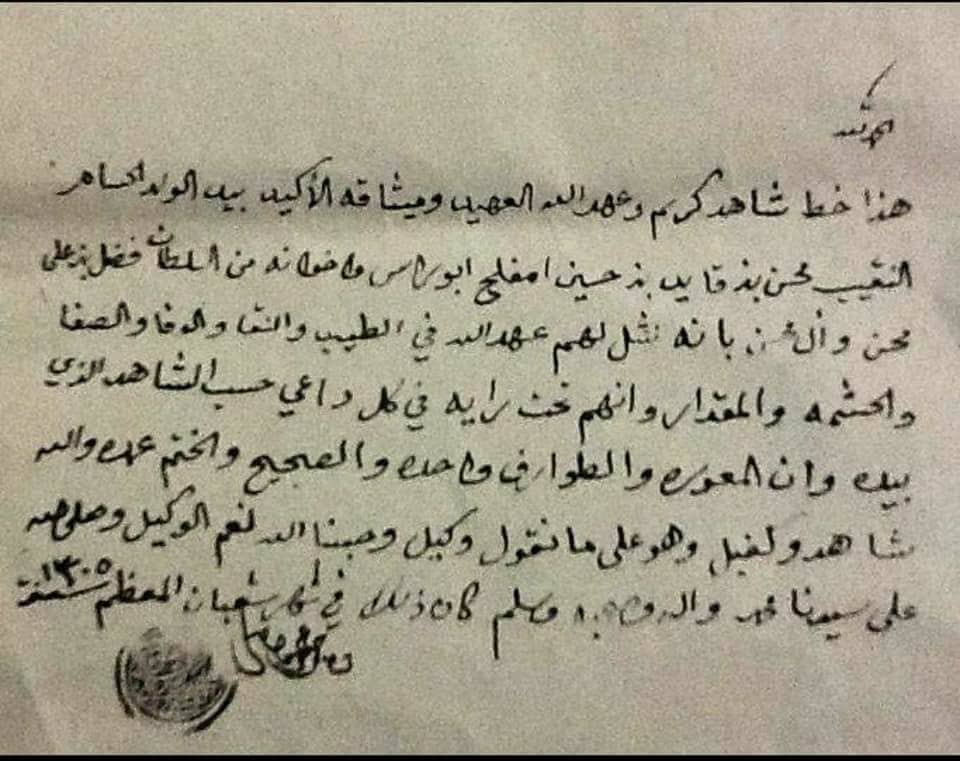 الحمد لله
هذا خط شاهد كريم وعهد الله العهيد وميثاقه الأكيد بيد الولد الحسام
النقيب محسن بن قايد بن حسين امفلح ابوراس واخوانه من السلطان فضل بن علي
محسن وال محسن بانه لهم عهد الله في الطيب والنقا والوفا والصفا
والحشمه والمقدار وانهم تحت رايه في كل داعي حسب الشاهد الذي
بيده وان العوره والطوارف واحده والصحيح والختم عهده والله
شاهد وكفيل وهو على ما نقول وكيل وحسبنا الله نعم الوكيل وصلى الله
على سيدنا محمد واله وصحبه وسلم كان ذلك في شهر شعبان المعظم سنة ١٣٠٥